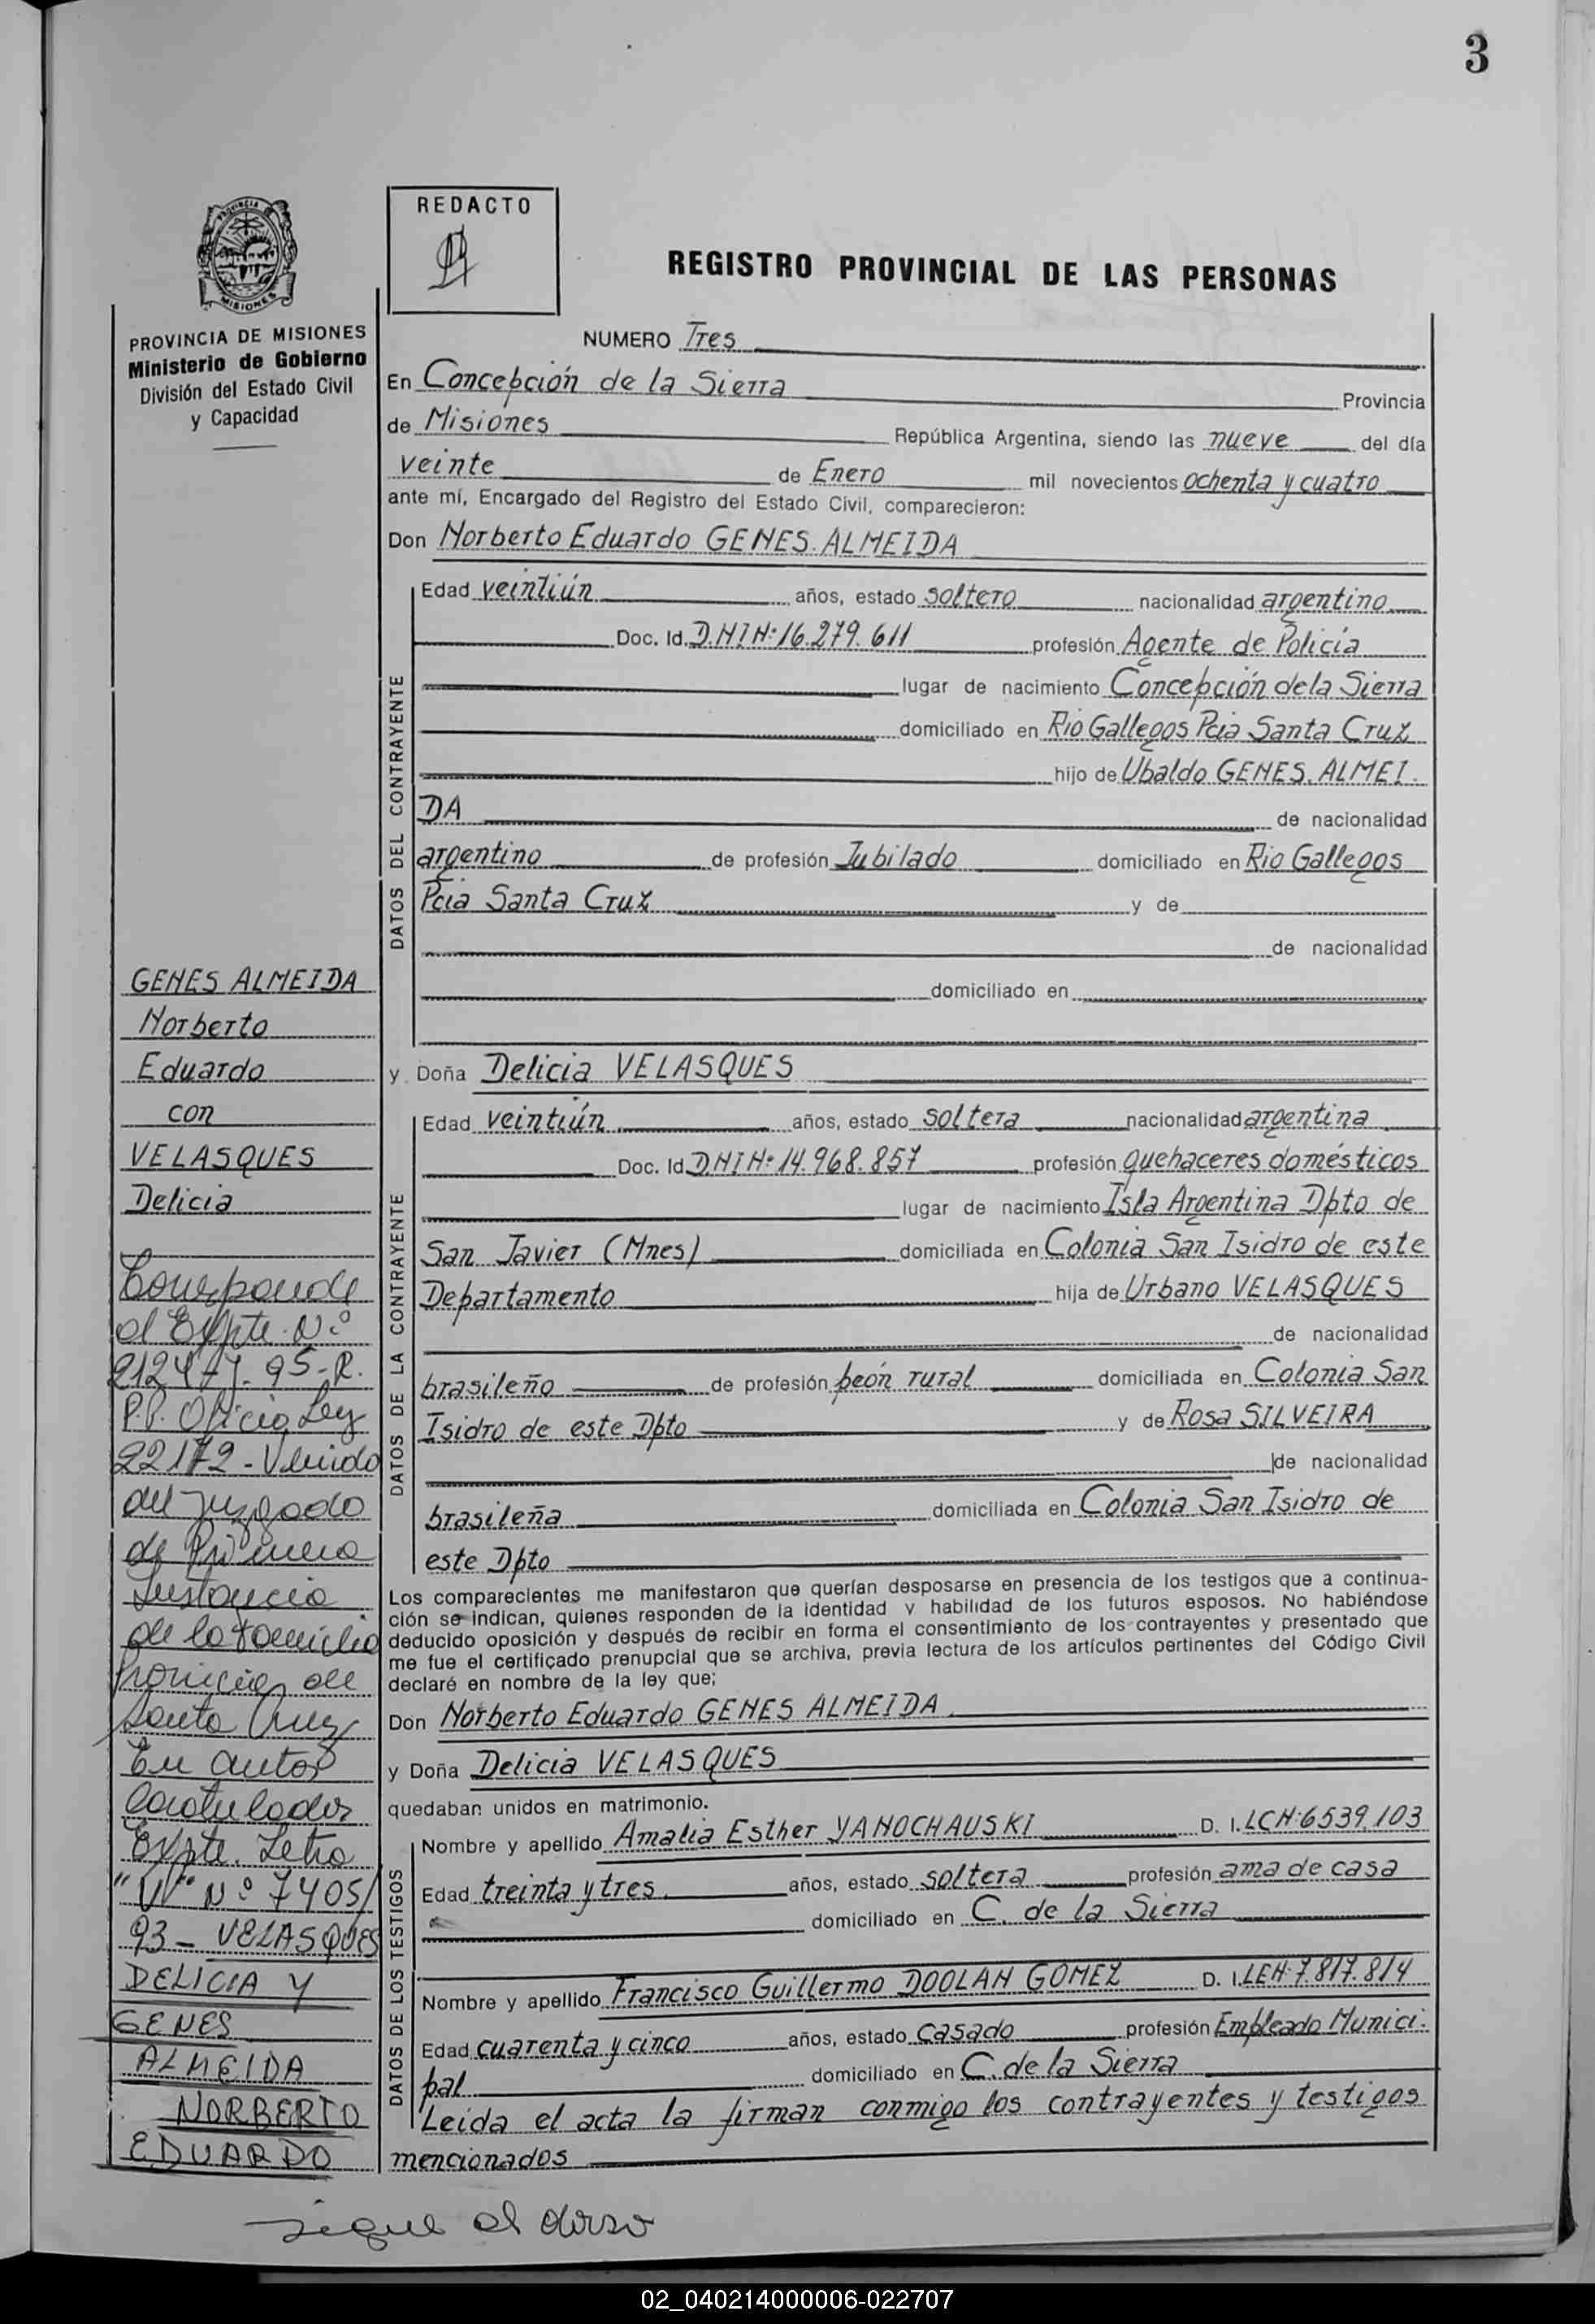 3
REDACTO
REGISTRO PROVINCIAL DE LAS PERSONAS
MISIONES
PROVINCIA DE MISIONES
Ministerio de Gobierno
División del Estado Civil
y Capacidad
NUMERO Tres
En Concepción de la Sierra Provincia
de Misiones República Argentina, siendo las nueve del día
veinte de Enero mil novecientos ochenta y cuatro
ante mí, Encargado del Registro del Estado Civil, comparecieron:
Don Norberto Eduardo GENES ALMEIDA
DATOS DEL CONTRAYENTE
Edad veintiún años, estado soltero nacionalidad argentino
Doc. Id. D.N.I N: 16.279.611 profesión Agente de Policía
lugar de nacimiento Concepción de la Sierra
domiciliado en Rio Gallegos Pcia Santa Cruz
hijo de Ubaldo GENES ALMEI-
DA de nacionalidad
argentino de profesión Jubilado domiciliado en Rio Gallegos
Pcia Santa Cruz y de
de nacionalidad
domiciliado en
y Doña Delicia VELASQUES
DATOS DE LA CONTRAYENTE
Edad veintiún años, estado soltera nacionalidad argentina
Doc. Id. D.N.I N: 14.968.857 profesión quehaceres domésticos
lugar de nacimiento Isla Argentina Dpto de
San Javier (Mnes) domiciliada en Colonia San Isidro de este
Departamento hija de Urbano VELASQUES
de nacionalidad
brasileño de profesión peón rural domiciliada en Colonia San
Isidro de este Dpto y de Rosa SILVEIRA
de nacionalidad
brasileña domiciliada en Colonia San Isidro de
este Dpto
Los comparecientes me manifestaron que querían desposarse en presencia de los testigos que a continua-
ción se indican, quienes responden de la identidad y habilidad de los futuros esposos. No habiéndose
deducido oposición y después de recibir en forma el consentimiento de los contrayentes y presentado que
me fue el certificado prenupcial que se archiva, previa lectura de los artículos pertinentes del Código Civil
declaré en nombre de la ley que;
Don Norberto Eduardo GENES ALMEIDA
y Doña Delicia VELASQUES
quedaban unidos en matrimonio.
DATOS DE LOS TESTIGOS
Nombre y apellido Amalia Esther YANOCHAUSKI D. I. LCN: 6539.103
Edad treinta y tres años, estado soltera profesión ama de casa
domiciliado en C. de la Sierra
Nombre y apellido Francisco Guillermo DOOLAN GOMEZ D. I. LEN: 7.817.814
Edad cuarenta y cinco años, estado casado profesión Empleado Munici-
pal domiciliado en C. de la Sierra
Leída el acta la firman conmigo los contrayentes y testigos
mencionados
GENES ALMEIDA
Norberto
Eduardo
con
VELASQUES
Delicia
Corresponde
al Expte. Nº
95-R.
P.P. Oficio Ley
22172 - Venido
del juzgado
de Primera
Instancia
de la familia
Provincia de
Santa Cruz
En autos
Caratulados
Expte. Letra
"V" Nº 7405/
93 - VELASQUES
DELICIA Y
GENES
ALMEIDA
NORBERTO
EDUARDO
sigue al dorso
02_040214000006-022707